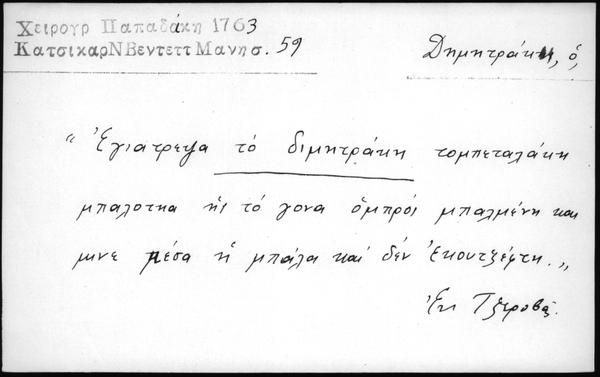 Χειρουρ Παπαδάκη 1763
ΚατσικαρΝΒεντεττΜανησ. 59
Δημητράκη, ὁ,
"Ἐγιάτρεψα τό διμητράκη τομπεταλάκη
μπαλοτκα ἠς τό γονα ὀμπρός μπαλμένη και
μινε μέσα ἡ μπάλα καί δέν ἐκουτζέφτη."
Ἐκ Τζεροβᾶ.